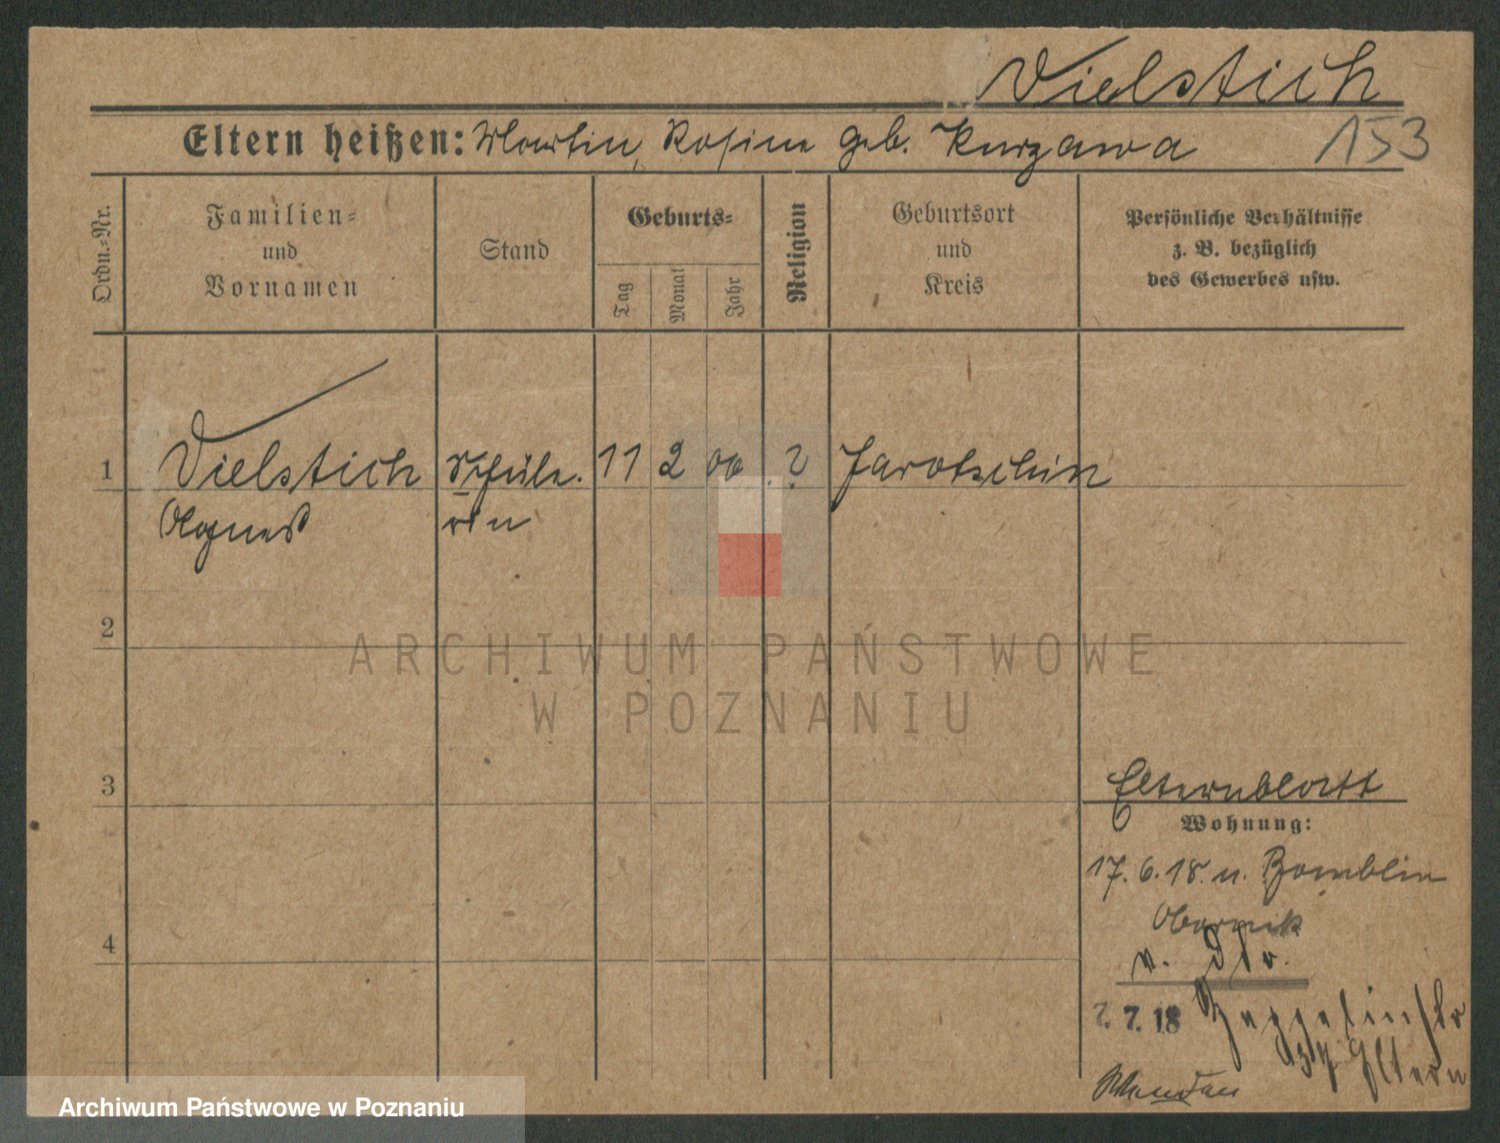 Vielstich
Eltern heißen: Martin, Rosine geb. Kurzawa 153
Ordn.-Nr.
Familien-
und
Vornamen
Stand
Geburts-
Tag
Monat
Jahr
Religion
Geburtsort
und
Kreis
Persönliche Verhältnisse
z. B. bezüglich
des Gewerbes usw.
1 Vielstich Schüle- 11 2 00 ? Jarotschin
Agnes rin
2
ARCHIWUM PAŃSTWOWE
W POZNANIU
3
Elternblatt
Wohnung:
17. 6. 18. n. Bomblin
Obornik
4
v. dto.
7. 7. 18 Zeppelinstr
Eltern
Archiwum Państwowe w Poznaniu